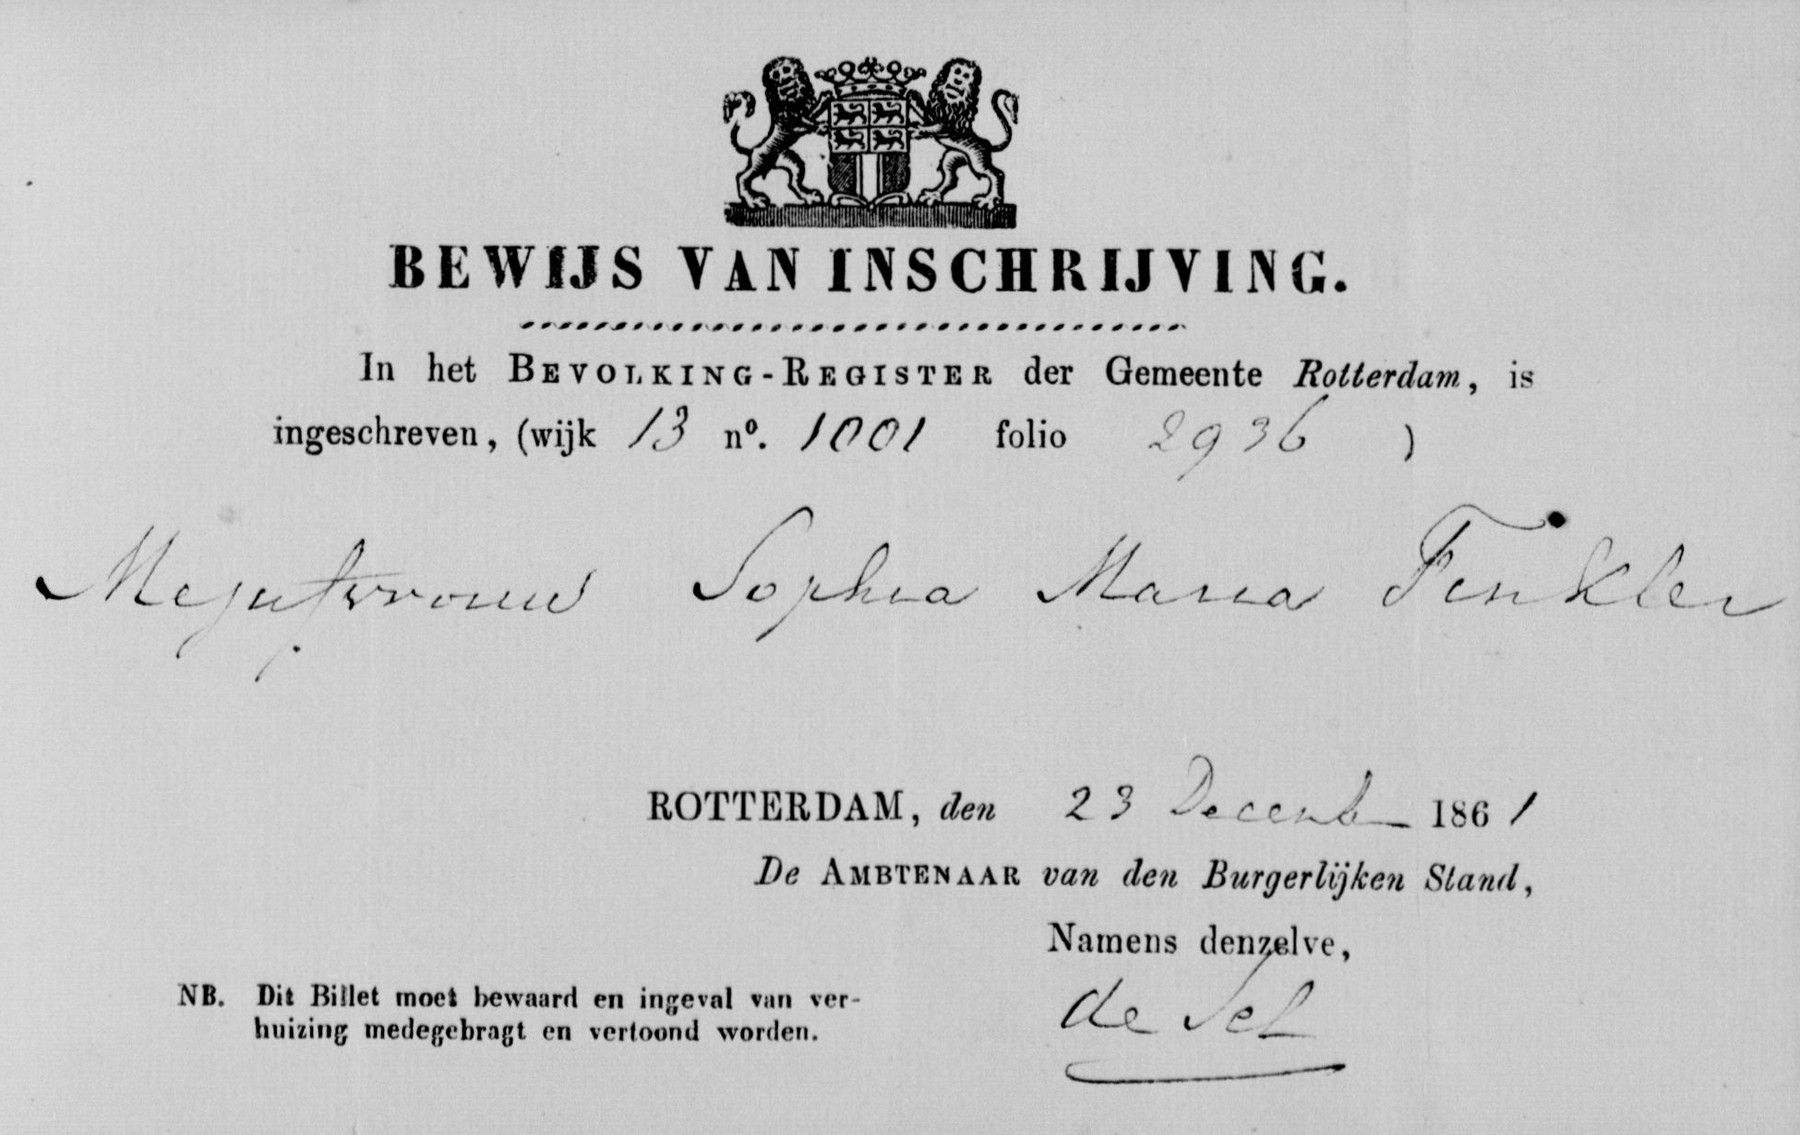 BEWIJS VAN INSCHRIJVING.
In het BEVOLKING-REGISTER der Gemeente Rotterdam, is
ingeschreven, (wijk 13 nº. 1001 folio 2936 )
Mejufvrouw Sophia Maria Finkler
ROTTERDAM, den 23 Decemb 1861
De AMBTENAAR van den Burgerlijken Stand,
Namens denzelve,
de
NB. Dit Billet moet bewaard en ingeval van ver-
huizing medegebragt en vertoond worden.